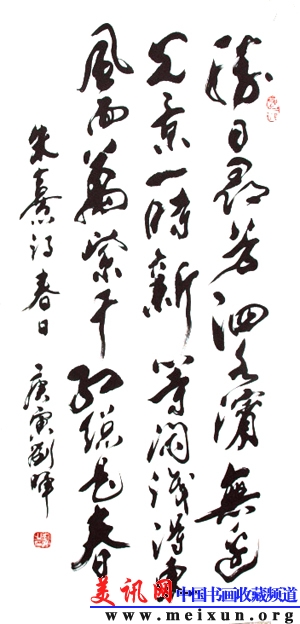 勝日尋芳泗水濱無邊
光景一時新等閒識得東
風面萬紫千紅總是春
朱熹詩春日 庚寅劉暉
美讯网 中国书画收藏频道
www.meixun.org